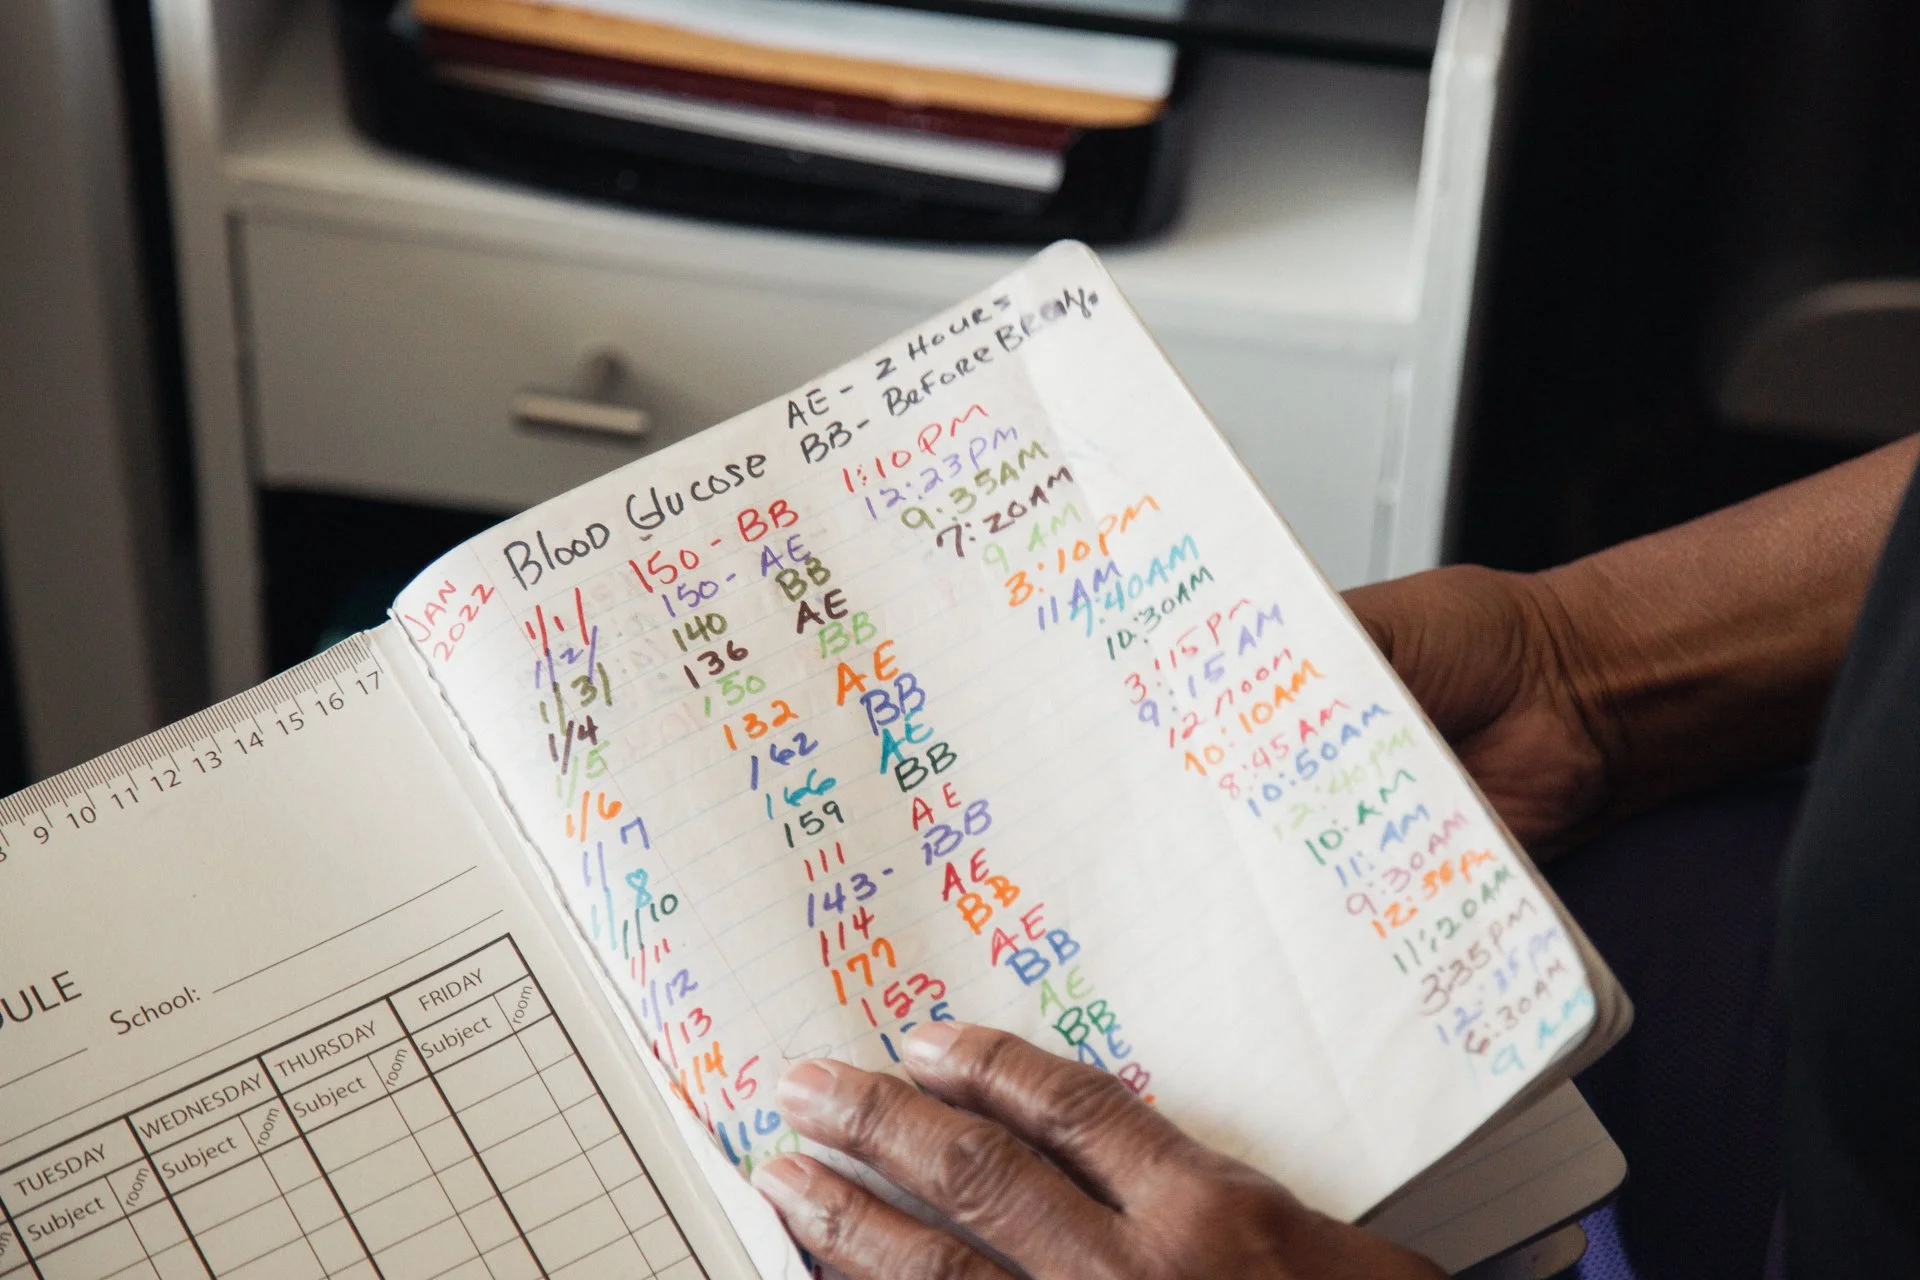 AE - 2 HOURS
BB - BEFORE
Blood Glucose
JAN
2022
1/1/ 150 - BB 1:10 PM
1/2/ 150 - AE 12:23PM
1/3/ 140 BB 9:35AM
1/4 136 AE 7:20AM
1/5 150 BB 9 AM
1/6 132 AE 3:10PM
1/7 162 BB 11 AM
1/8 166 AE :40AM
1/10 159 BB 10:30AM
1/11 111 AE 3:15PM
1/12 143 - BB 9:15AM
1/13 114 AE 12 noon
1/14 177 BB 10:10AM
1/15 153 AE 8:45AM
1/16 BB 10:50AM
AE 12:40PM
BB 10:AM
AE 11:AM
9:30AM
12:35PM
11:20AM
3:35PM
12:35PM
6:30AM
9
9 10 11 12 13 14 15 16 17
School:
TUESDAY WEDNESDAY THURSDAY FRIDAY
Subject room Subject room Subject room Subject room